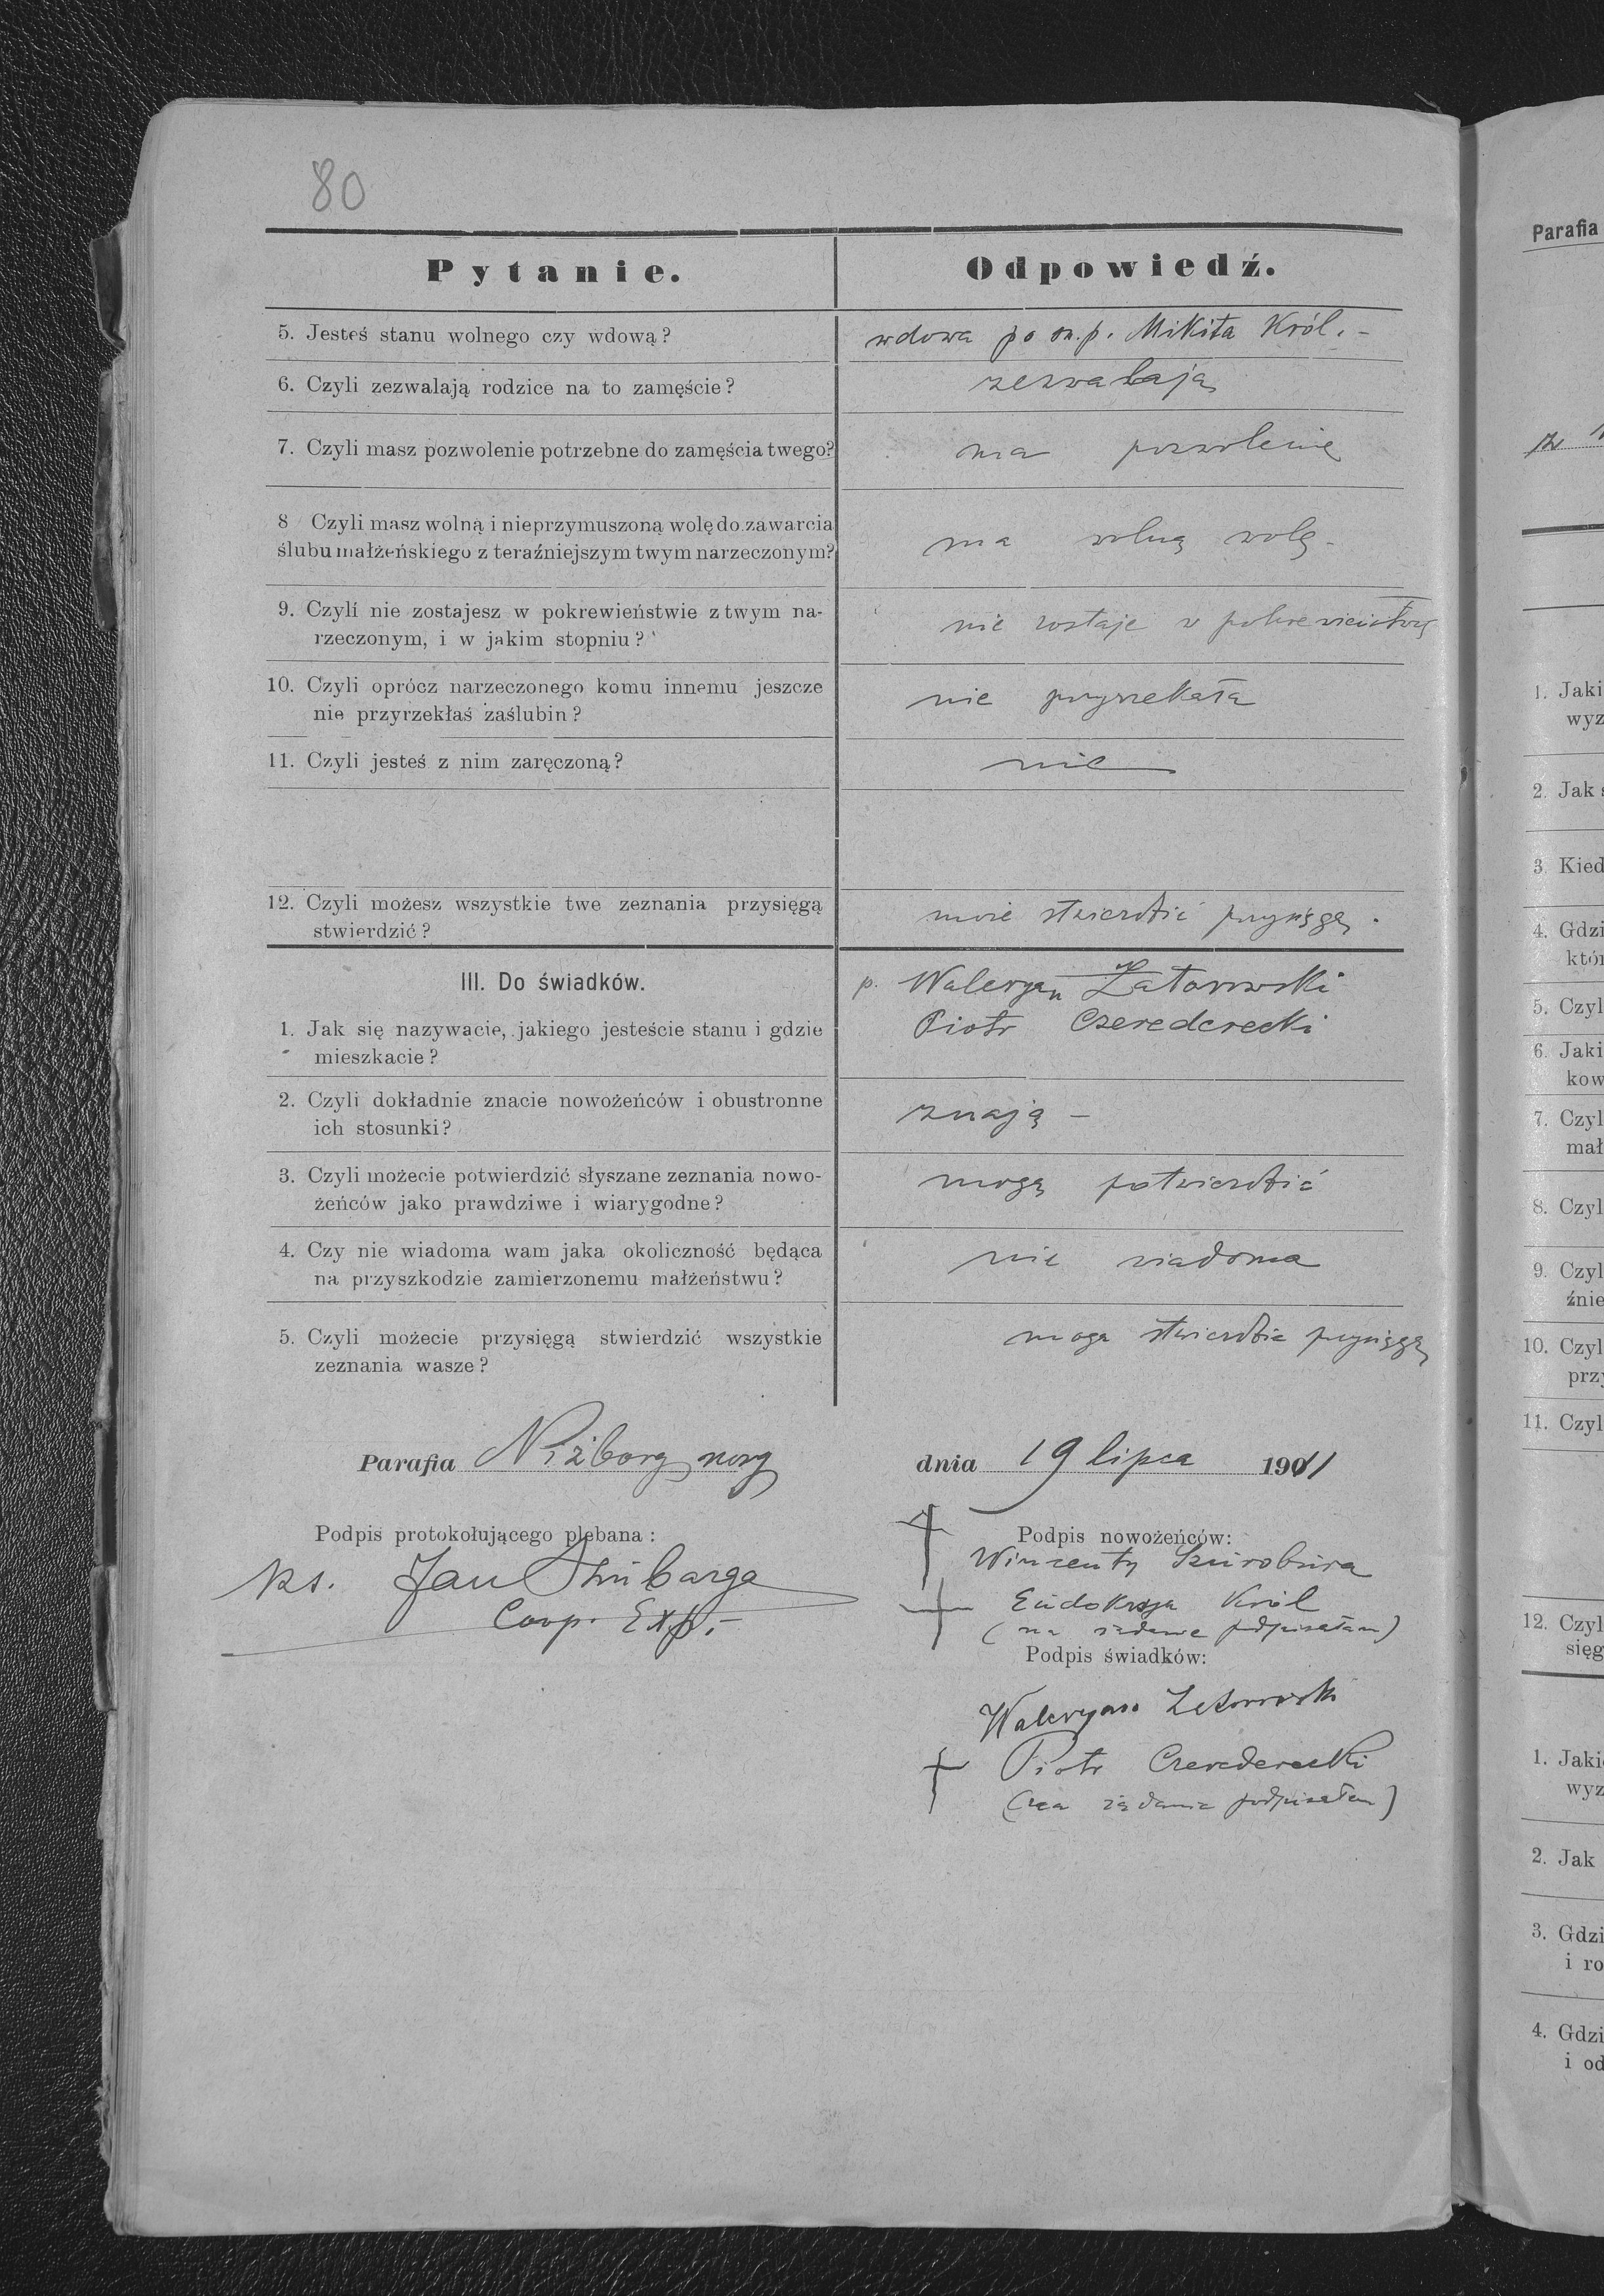 80
Pytanie.
Odpowiedź.
5. Jesteś stanu wolnego czy wdową?
wdowa po m.p. Mikita Król. –
6. Czyli zezwalają rodzice na to zamęście?
zezwalają
7. Czyli masz pozwolenie potrzebne do zamęścia twego?
ma pozwolenie
8 Czyli masz wolną i nieprzymuszoną wolę do zawarcia
ślubu małżeńskiego z teraźniejszym twym narzeczonym?
ma wolną wolę –
9. Czyli nie zostajesz w pokrewieństwie z twym na-
rzeczonym, i w jakim stopniu?
nie zostaje w
10. Czyli oprócz narzeczonego komu innemu jeszcze
nie przyrzekłaś zaślubin?
nie przyrzekała
11. Czyli jesteś z nim zaręczoną?
nie
12. Czyli możesz wszystkie twe zeznania przysięgą
stwierdzić?
może stwierdzić przysięgą.
III. Do świadków.
p. Waleryan Zatorowski
1. Jak się nazywacie, jakiego jesteście stanu i gdzie
mieszkacie?
Piotr Czeredcrecki
2. Czyli dokładnie znacie nowożeńców i obustronne
ich stosunki?
znają –
3. Czyli możecie potwierdzić słyszane zeznania nowo-
żeńców jako prawdziwe i wiarygodne?
mogą potwierdzić
4. Czy nie wiadoma wam jaka okoliczność będąca
na przyszkodzie zamierzonemu małżeństwu?
nie wiadoma
5. Czyli możecie przysięgą stwierdzić wszystkie
zeznania wasze?
mogą stwierdzić przysięgą
Parafia Niżborg nowy
dnia 19 lipca 1911
Podpis protokołującego plebana:
ks. Jan
Coop. Exp. –
Podpis nowożeńców:
Wincenty
Eudokya Król
(na żądanie podpisałam)
Podpis świadków:
Waleryan Zatorowski
Piotr Czeredcrecki
(na żądanie podpisałem)
Parafia
1. Jaki
wyz
2. Jak
3 Kied
4. Gdzi
któr
5. Czyl
6. Jaki
kow
7. Czyl
mał
8. Czyl
9. Czyl
źnie
10. Czyl
przy
11. Czyl
12. Czyl
sięg
1. Jaki
wyz
2. Jak
3. Gdzi
i ro
4. Gdzi
i od